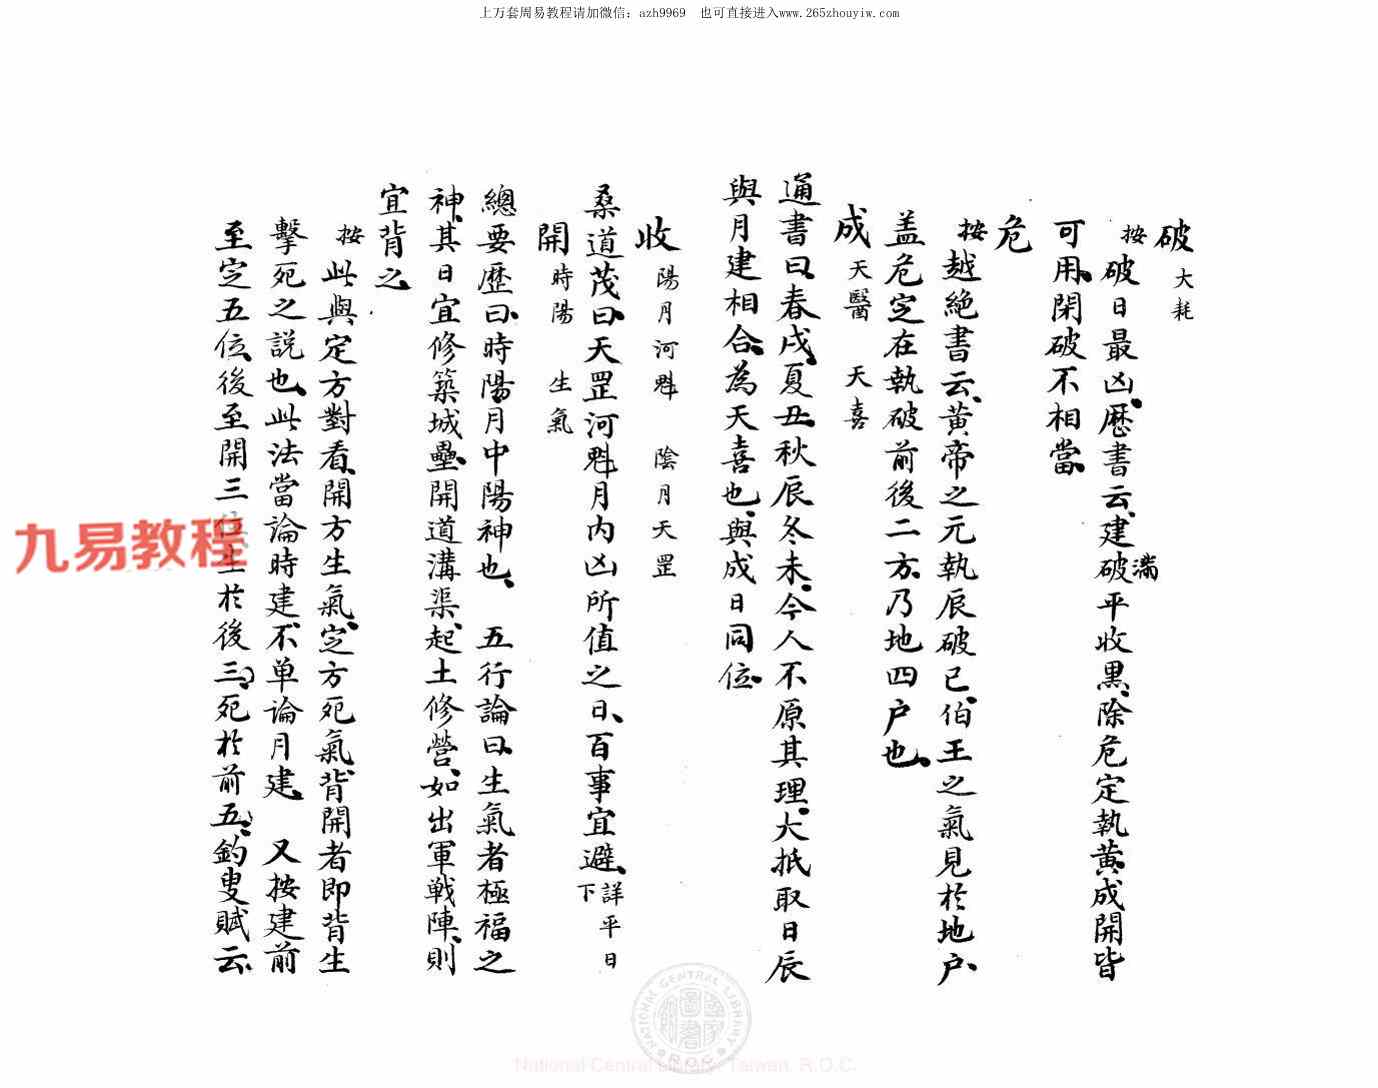 上万套周易教程请加微信：azh9969　也可直接进入www.265zhouyiw.com
破　大耗
按破日最凶、歷書云、建破平收黒、除危定執黄、成開皆
滿
可用、閉破不相當、
危
按越絶書云、黄帝之元執辰破巳、伯王之氣見於地户、
盖危定在執破前後二方、乃地四户也、
成　天醫　天喜
通書曰、春戌、夏丑、秋辰冬未、今人不原其理、大抵取日辰
與月建相合、為天喜也、與成日同位、
收　陽月河魁　陰月天罡
桑道茂曰、天罡河魁月内凶所值之日、百事宜避、詳平日下
開　時陽　生氣
總要歷曰、時陽、月中陽神也、　五行論曰、生氣者極福之
神、其日宜修築城壘、開道溝渠、起土修營、如出軍戰陣、則
宜背之、
按此與定方對看、開方生氣、定方死氣、背開者即背生
擊死之説也、此法當論時建、不单論月建、　又按建前
至定五位、後至開三位生於後三、死於前五、釣叟賦云、
九易教程
NATIONAL CENTRAL LIBRARY R.O.C.
國家圖書館
National Central Library, Taiwan, R.O.C.